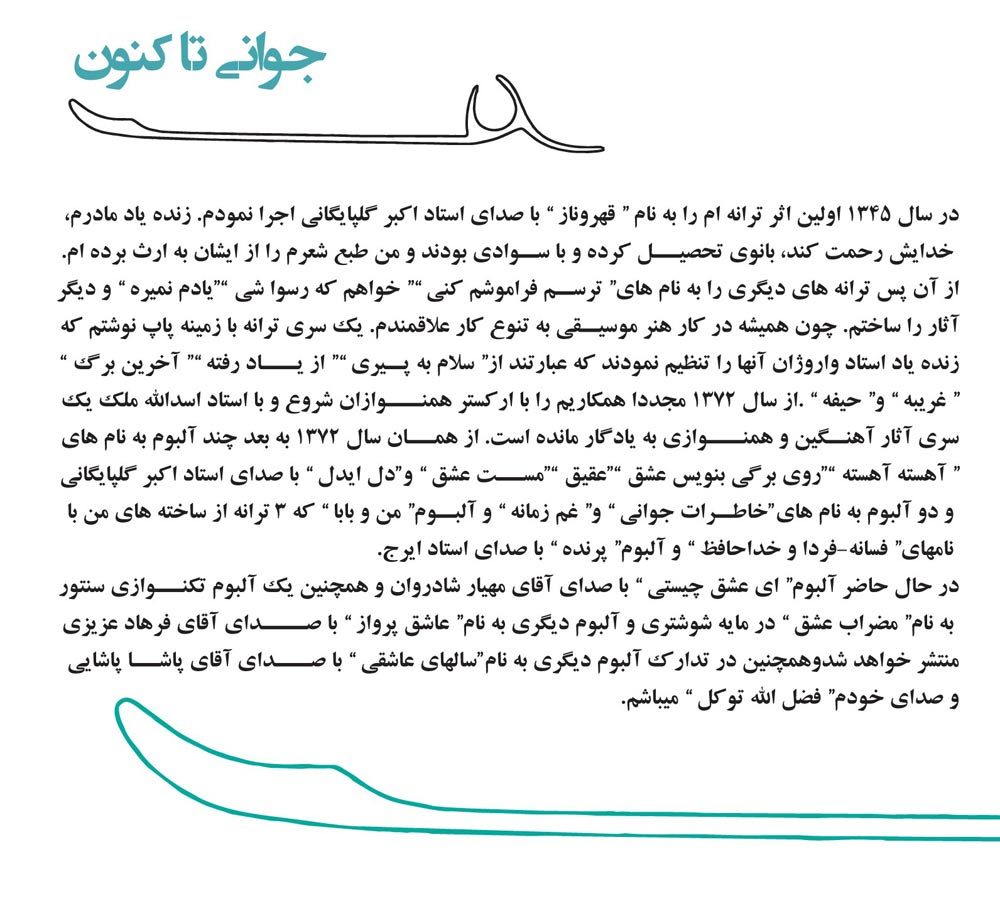 جوانی تا کنون
در سال ۱۳۴۵ اولین اثر ترانه ام را به نام ” قهروناز “ با صدای استاد اکبر گلپایگانی اجرا نمودم. زنده یاد مادرم،
خدایش رحمت کند، بانوی تحصیـــل کرده و با ســوادی بودند و من طبع شعرم را از ایشان به ارث برده ام.
از آن پس ترانه های دیگری را به نام های” ترســم فراموشم کنی “” خواهم که رسوا شی “”یادم نمیره “ و دیگر
آثار را ساختم. چون همیشه در کار هنر موسیــقی به تنوع کار علاقمندم. یک سری ترانه با زمینه پاپ نوشتم که
زنده یاد استاد واروژان آنها را تنظیم نمودند که عبارتند از” سلام به پــیری “” از یـــاد رفته “” آخرین برگ “
” غریبه “ و” حیفه “ .از سال ۱۳۷۲ مجددا همکاریم را با ارکستر همنـــوازان شروع و با استاد اسدالله ملک یک
سری آثار آهنــگین و همنـــوازی به یادگار مانده است. از همـــان سال ۱۳۷۲ به بعد چند آلبوم به نام های
” آهسته آهسته “”روی برگی بنویس عشق “”عقیق “”مســت عشق “ و”دل ایدل “ با صدای استاد اکبر گلپایگانی
و دو آلبوم به نام های”خاطــرات جوانی “ و” غم زمانه “ و آلبــوم” من و بابا “ که ۳ ترانه از ساخته های من با
نامهای” فسانه-فردا و خداحافظ “ و آلبوم” پرنده “ با صدای استاد ایرج.
در حال حاضر آلبوم” ای عشق چیستی “ با صدای آقای مهیار شادروان و همچنین یک آلبوم تکنـــوازی سنتور
به نام” مضراب عشق “ در مایه شوشتری و آلبوم دیگری به نام” عاشق پرواز “ با صـــدای آقای فرهاد عزیزی
منتشر خواهد شدوهمچنین در تدارک آلبوم دیگری به نام”سالهای عاشقی “ با صـــدای آقای پاشــا پاشایی
و صدای خودم” فضل الله توکل “ میباشم.